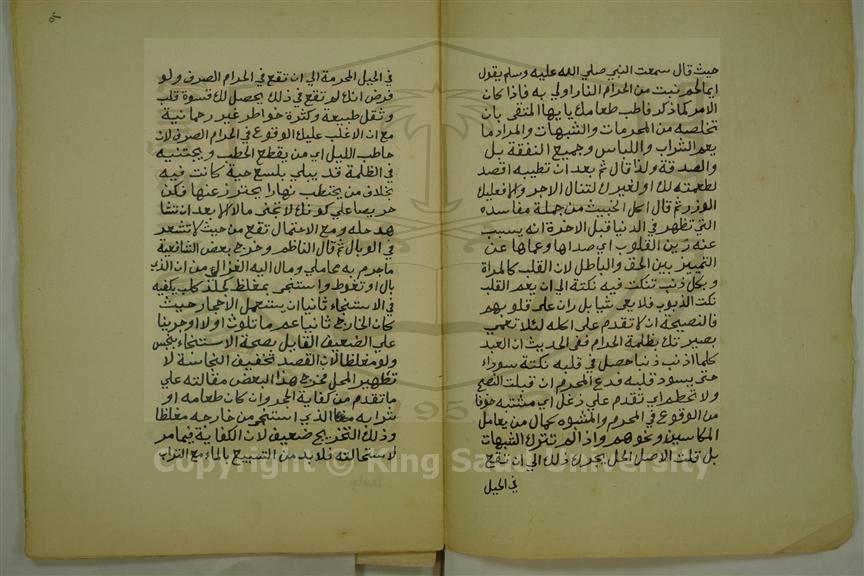 حيث قال سمعت النبي صلي الله عليه وسلم يقول
ايما لحم نبت من الحرام النار اولي به فاذا كان
الامر كما ذكر فاطب طعامك يا يها المتقي بان
تخلصه من المحرمات والشبهات والمراد ما
يعم الشراب واللباس وجميع النفقة بل
والصدقة ولذا قال ثم بعد ان تطيبه اقصد
لطعمته لك او لغيرك لتنال الاجر والا فعليك
الوزر ثم قال اكل الخبيث من جملة مفاسده
التي تظهر في الدنيا قبل الاخرة انه يسبب
عنه رين القلوب اي صداها وعماها عن
التمييز بين الحق والباطل لان القلب كالمراة
وبكل ذنب تنكت فيه نكتة الي ان يعم القلب
نكت الذنوب فلا يعي شيا بل ران علي قلوبهم
فالنصيحة ان لا تقدم علي اكله لئلا تعمي
بصيرتك بظلمة الحرام ففي الحديث ان العبد
كلما اذنب ذنبا حصل في قلبه نكتة سوداء
حتى يسود قلبه فدع المحرم ان قبلت النصح
ولا تحطم اي تقدم علي دغل اي مشتبه خوفا
من الوقوع في المحرم والمشوه كمال من يعامل
المكاسين ونحوهم واذا لم تترك الشبهات
بل قلت الاصل الحل يجرك ذلك الي ان تقع
في الحيل
في الحيل المحرمة الي ان تقع في الحرام الصرف ولو
فرض انك لم تقع في ذلك يحصل لك قسوة قلب
وثقل طبيعة وكثرة خواطر غير رحمانية
مع ان الاغلب عليك الوقوع في الحرام الصرف لان
حاطب الليل اي من يقطع الحطب ويجتنبه
في الظلمة قد يبلي بلسع حية كانت فيه
بخلاف من يحتطب نهارا يحترز عنها فكن
حريصا علي كونك لا تجني مالا الا بعد ان تشا
هد حله ومع الاحتمال تقع من حيث لا تشعر
في الوبال ثم قال الناظم وخرج بعض الشافعية
ما جرم به محاملي ومال اليه الغزالي من ان الذي
بال او تغوط واستنجى بمغلظ كجلد كلب يكفيه
في الاستنجاء ثانيا ان يستعمل الاحجار حيث
كان الخارج ثانيا عم ما تلوث اولا او جرينا
علي الضعيف القايل بصحة الاستنجاء بنجس
ولو مغلظا لان القصد تخفيف النجاسة لا
تطهير المحل فخرج هذا البعض مقالته علي
ما تقدم من كفاية الحجر وان كان طعامه او
شرابه مغلظا الذي استنجى من خارجه مغلظا
وذلك التخريج ضعيف لان الكفاية فيما مر
لاستحالته فلا بد من التسبيع بالماء مع التراب
Copyright © King Saud University